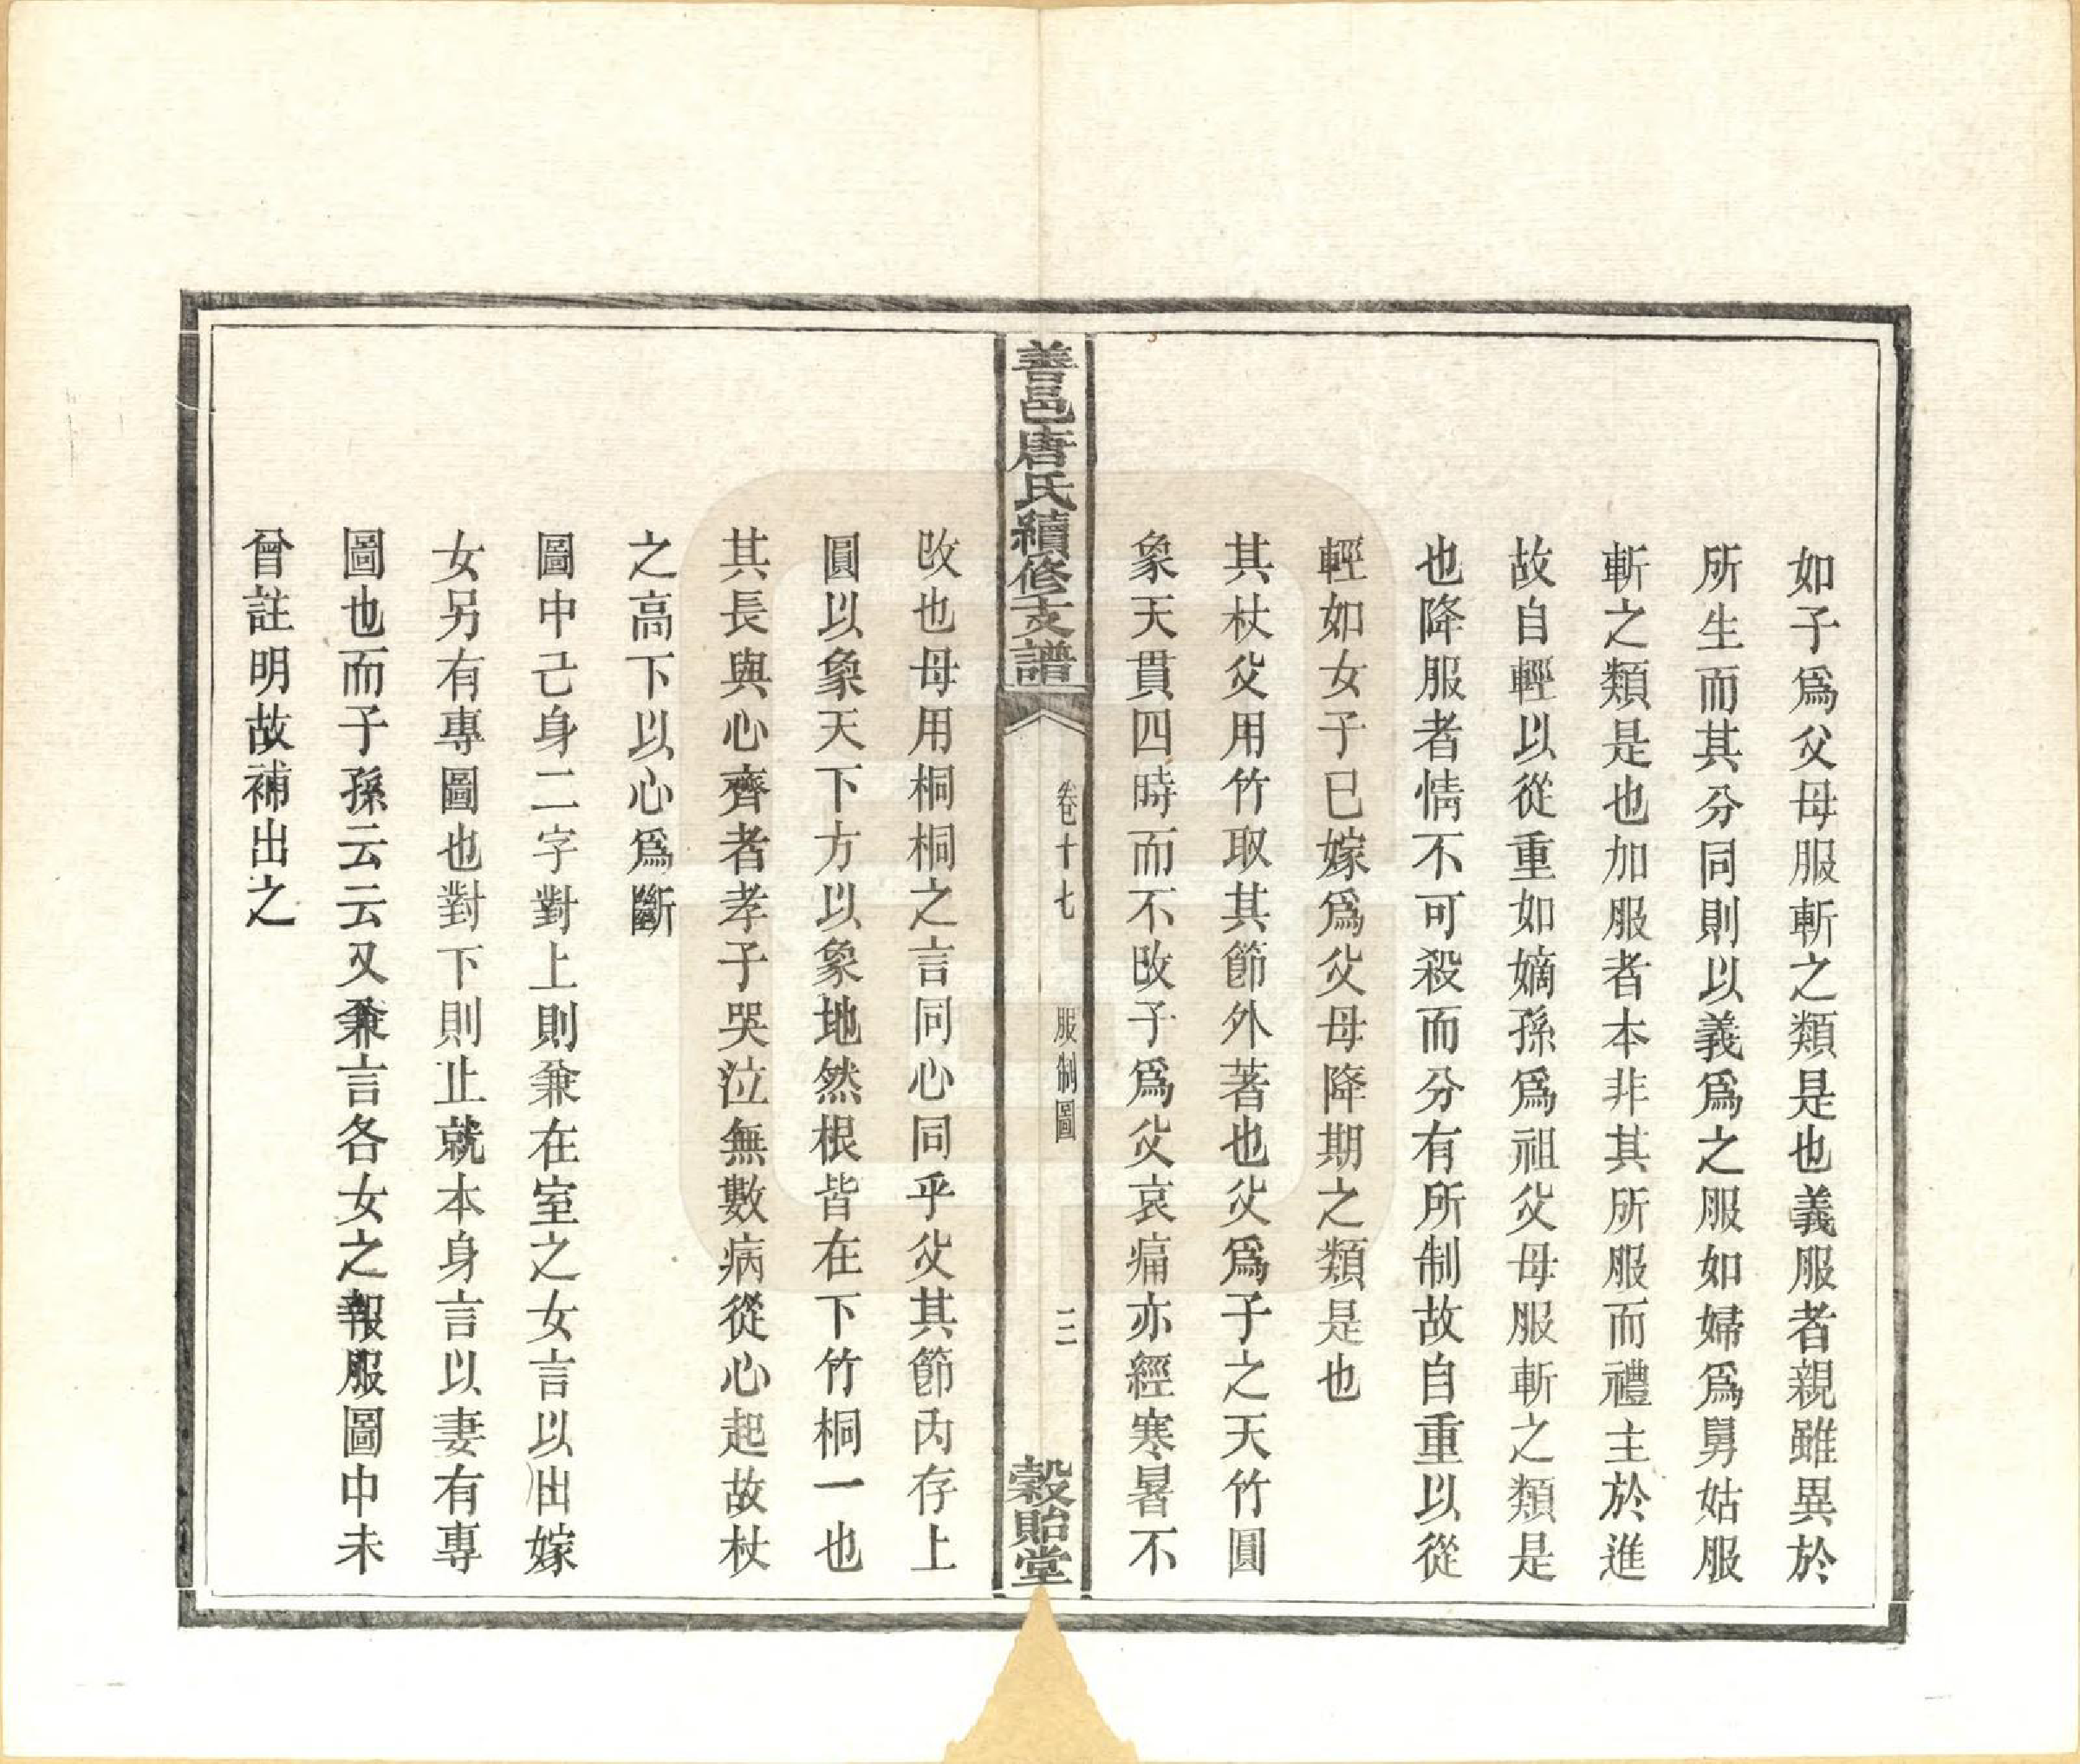 如子爲父母服斬之類是也義服者親雖異於
所生而其分同則以義爲之服如婦爲舅姑服
斬之類是也加服者本非其所服而禮主於進
故自輕以從重如嫡孫爲祖父母服斬之類是
也降服者情不可殺而分有所制故自重以從
輕如女子已嫁爲父母降期之類是也
其杖父用竹取其節外著也父爲子之天竹圓
象天貫四時而不改子爲父哀痛亦經寒暑不
善邑唐氏續修支譜
卷十七
服制圖
三
穀貽堂
改也母用桐桐之言同心同乎父其節內存上
圓以象天下方以象地然根皆在下竹桐一也
其長與心齊者孝子哭泣無數病從心起故杖
之高下以心爲斷
圖中己身二字對上則兼在室之女言以出嫁
女另有專圖也對下則止就本身言以妻有專
圖也而子孫云云又兼言各女之報服圖中未
曾註明故補出之